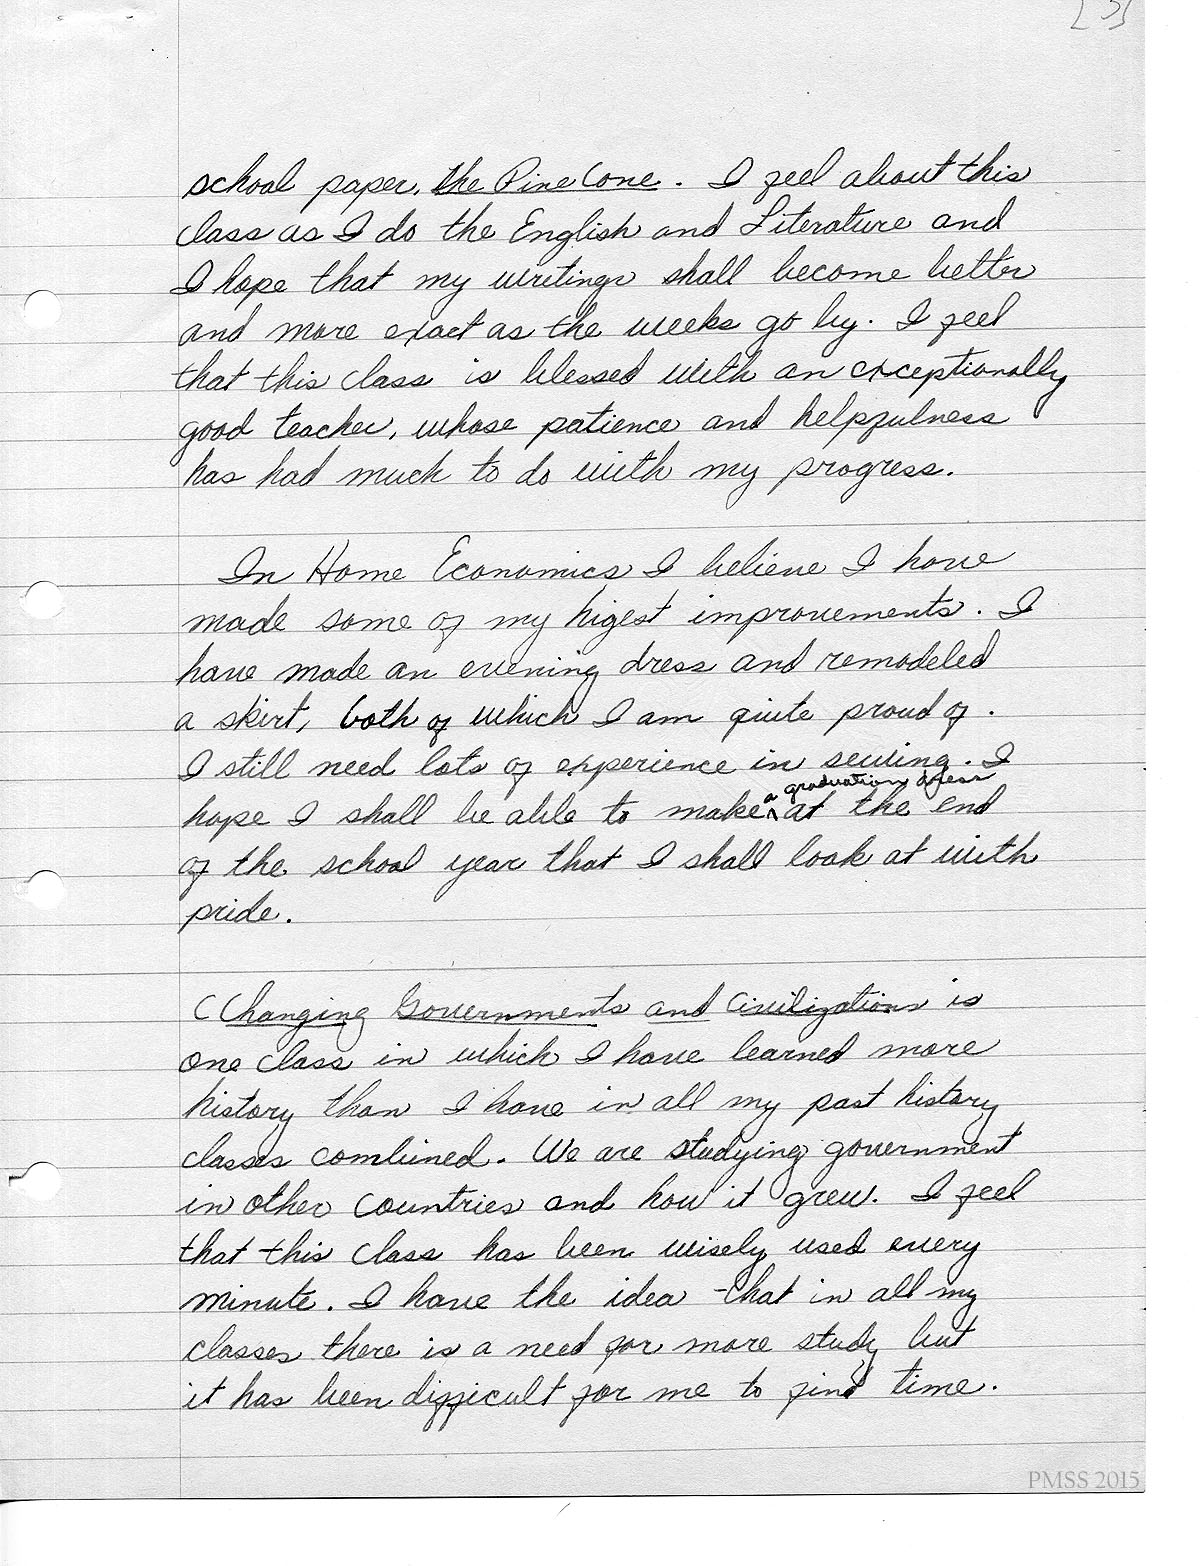 [3]
school paper, the Pine Cone. I feel about this
class as I do the English and Literature and
I hope that my writings shall become better
and more exact as the weeks go by. I feel
that this class is blessed with an exceptionally
good teacher, whose patience and helpfulness
has had much to do with my progress.
In Home Economics I believe I have
made some of my higest improvements. I
have made an evening dress and remodeled
a skirt, both of which I am quite proud of.
I still need lots of experience in sewing. I
a graduation dress
hope I shall be able to make ^ at the end
of the school year that I shall look at with
pride.
(Changing Governments and Civilizations is
one class in which I have learned more
history than I have in all my past history
classes combined. We are studying government
in other countries and how it grew. I feel
that this class has been wisely used every
minute. I have the idea that in all my
classes there is a need for more study but
it has been difficult for me to find time.
PMSS 2015